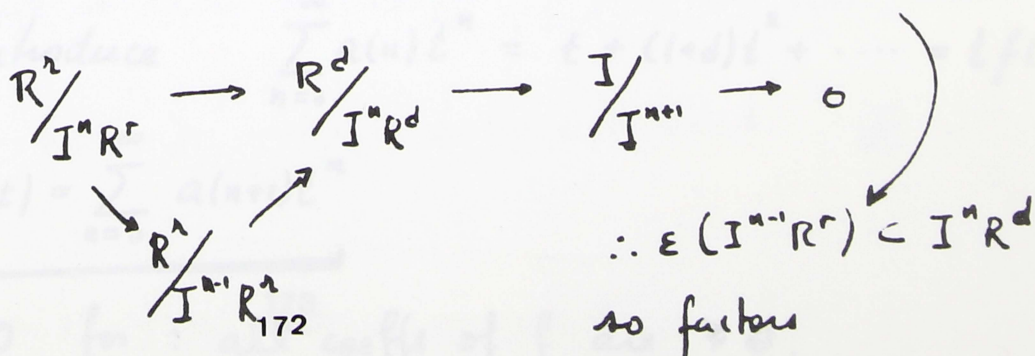 R^r/I^nR^r → R^d/I^nR^d → I/I^{n+1} → 0
R^r/I^{n-1}R^r
∴ ε(I^{n-1}R^r) ⊂ I^nR^d
172
so factors